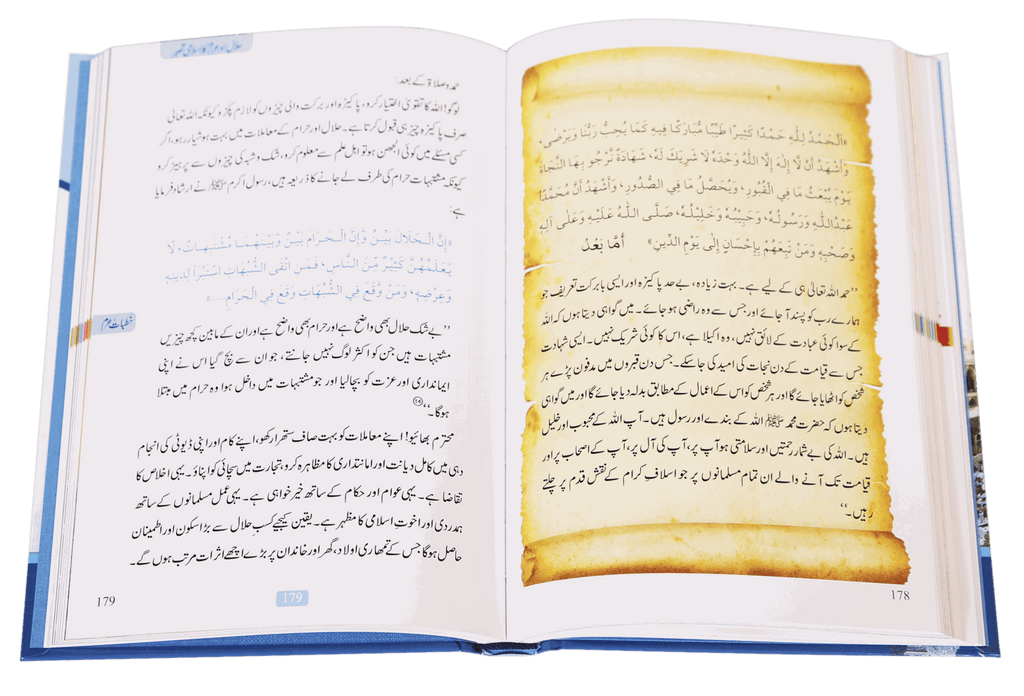 «اَلْحَمْدُ لِلّٰهِ حَمْدًا كَثِيرًا طَيِّبًا مُّبَارَكًا فِيهِ كَمَا يُحِبُّ رَبُّنَا وَيَرْضٰى،
وَأَشْهَدُ أَنْ لَّا إِلٰهَ إِلَّا اللّٰهُ وَحْدَهُ لَا شَرِيكَ لَهُ، شَهَادَةً نَّرْجُو بِهَا النَّجَاةَ
يَوْمَ يُبْعَثُ مَا فِي الْقُبُورِ، وَيُحَصَّلُ مَا فِي الصُّدُورِ، وَأَشْهَدُ أَنَّ مُحَمَّدًا
عَبْدُاللّٰهِ وَرَسُولُهُ، وَحَبِيبُهُ وَخَلِيلُهُ، صَلَّى اللّٰهُ عَلَيْهِ وَعَلٰى آلِهِ
وَصَحْبِهِ وَمَنْ تَبِعَهُمْ بِإِحْسَانٍ إِلٰى يَوْمِ الدِّينِ» أَمَّا بَعْدُ
’’حمد اللہ تعالیٰ ہی کے لیے ہے۔ بہت زیادہ، بے حد پاکیزہ اور ایسی بابرکت تعریف جو
ہمارے رب کو پسند آجائے اور جس سے وہ راضی ہو جائے۔ میں گواہی دیتا ہوں کہ اللہ
کے سوا کوئی عبادت کے لائق نہیں، وہ اکیلا ہے، اس کا کوئی شریک نہیں۔ ایسی شہادت
جس سے قیامت کے دن نجات کی امید کی جاسکے۔ جس دن قبروں میں مدفون پڑے ہر
شخص کو اٹھایا جائے گا اور ہر شخص کو اس کے اعمال کے مطابق بدلہ دیا جائے گا اور میں گواہی
دیتا ہوں کہ حضرت محمد ﷺ اللہ کے بندے اور رسول ہیں۔ آپ اللہ کے محبوب اور خلیل
ہیں۔ اللہ کی بے شمار رحمتیں اور سلامتی ہو آپ پر، آپ کی آل پر، آپ کے اصحاب پر اور
قیامت تک آنے والے ان تمام مسلمانوں پر جو اسلاف کرام کے نقش قدم پر چلتے
رہیں۔‘‘
178
حلال اور حرام کا اسلامی تصور
حمد و صلاۃ کے بعد:
لوگو! اللہ کا تقویٰ اختیار کرو، پاکیزہ اور برکت والی چیزوں کو لازم پکڑو کیونکہ اللہ تعالیٰ
صرف پاکیزہ چیز ہی قبول کرتا ہے۔ حلال اور حرام کے معاملات میں بہت ہوشیار رہو، اگر
کسی مسئلے میں کوئی الجھن ہو تو اہل علم سے معلوم کرو، شک و شبہ کی چیزوں سے پرہیز کرو
کیونکہ مشتبہات حرام کی طرف لے جانے کا ذریعہ ہیں، رسول اکرم ﷺ نے ارشاد فرمایا
ہے:
«إِنَّ الْحَلَالَ بَيِّنٌ وَّإِنَّ الْحَرَامَ بَيِّنٌ وَّبَيْنَهُمَا مُشْتَبِهَاتٌ، لَا
يَعْلَمُهُنَّ كَثِيرٌ مِّنَ النَّاسِ، فَمَنِ اتَّقَى الشُّبُهَاتِ اسْتَبْرَأَ لِدِينِهِ
وَعِرْضِهِ، وَمَنْ وَّقَعَ فِي الشُّبُهَاتِ وَقَعَ فِي الْحَرَامِ....»
خطبات حرم
’’بے شک حلال بھی واضح ہے اور حرام بھی واضح ہے اور ان کے مابین کچھ چیزیں
مشتبہات ہیں جن کو اکثر لوگ نہیں جانتے، جو ان سے بچ گیا اس نے اپنی
ایمانداری اور عزت کو بچا لیا اور جو مشتبہات میں داخل ہوا وہ حرام میں مبتلا
ہوگا۔‘‘
محترم بھائیو! اپنے معاملات کو بہت صاف ستھرا رکھو، اپنے کام اور اپنی ڈیوٹی کی انجام
دہی میں کامل دیانت اور امانتداری کا مظاہرہ کرو، تجارت میں سچائی کو اپناؤ۔ یہی اخلاص کا
تقاضا ہے۔ یہی عوام اور حکام کے ساتھ خیر خواہی ہے۔ یہی عمل مسلمانوں کے ساتھ
ہمدردی اور اخوتِ اسلامی کا مظہر ہے۔ یقین کیجیے کسبِ حلال سے بڑا سکون اور اطمینان
حاصل ہوگا جس کے تمھاری اولاد، گھر اور خاندان پر بڑے اچھے اثرات مرتب ہوں گے۔
179
179